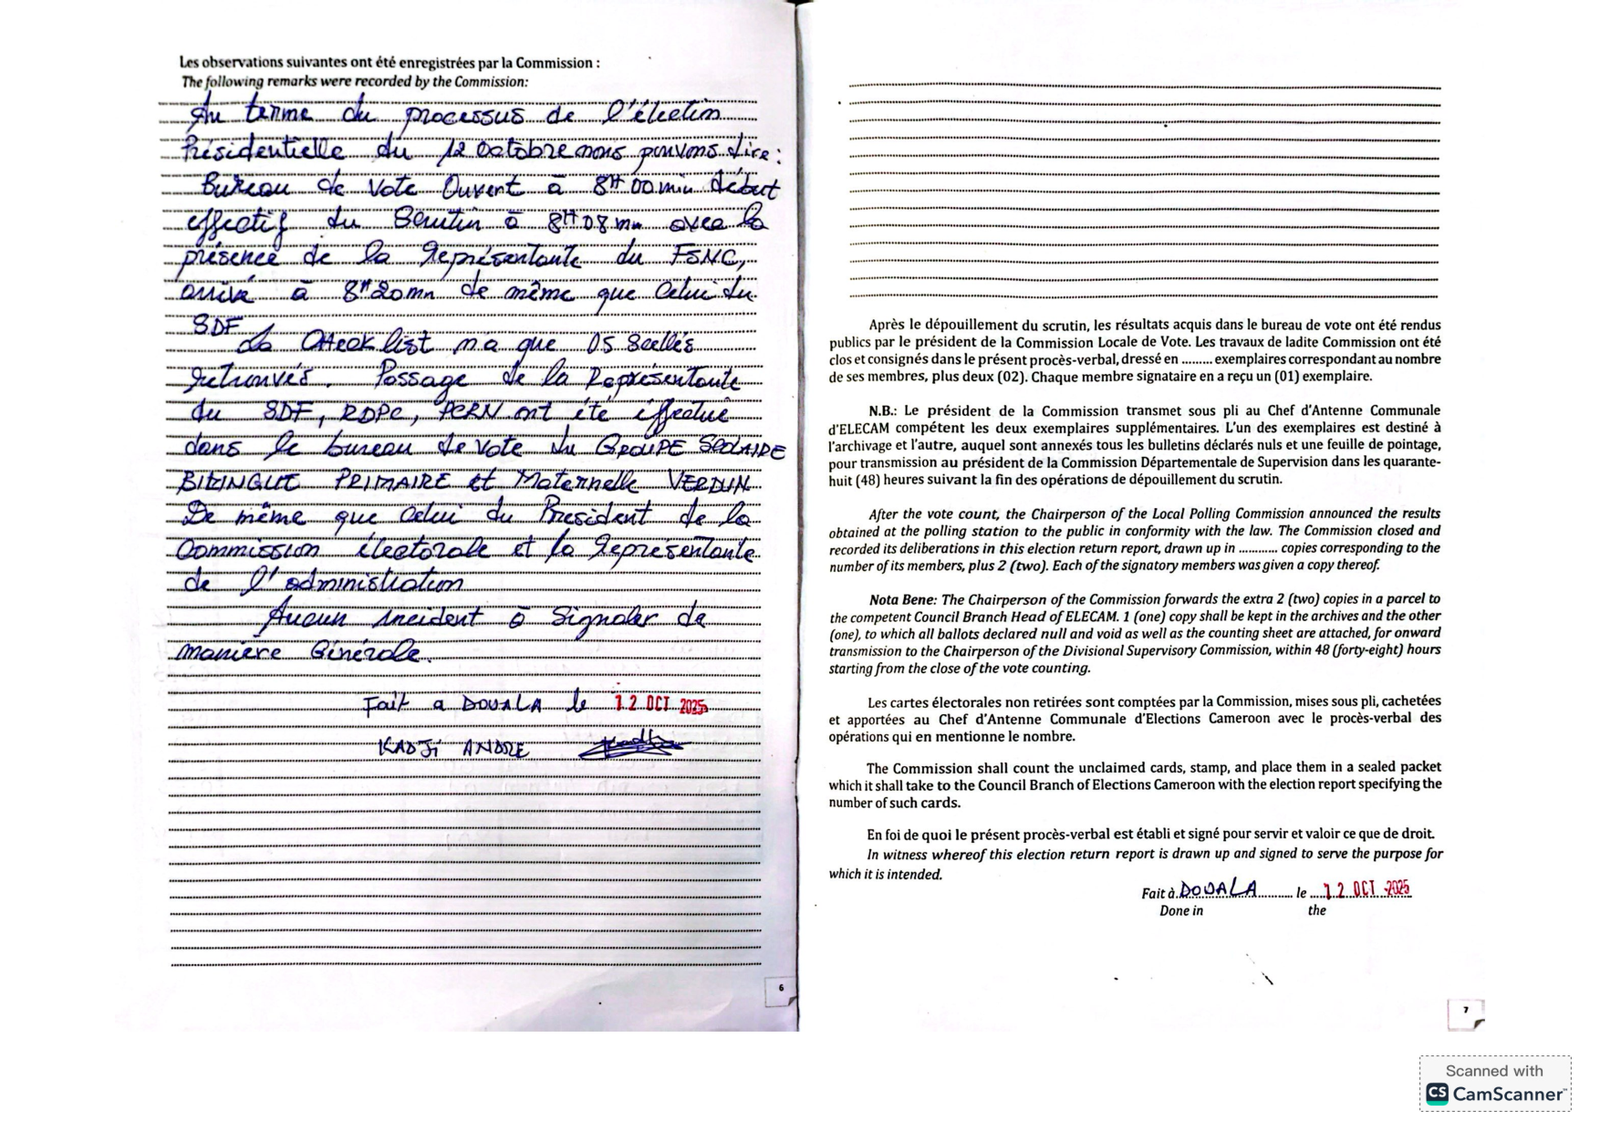 Les observations suivantes ont été enregistrées par la Commission :
The following remarks were recorded by the Commission:
Au terme du processus de l'élection
Présidentielle du 12 octobre nous pouvons dire :
Bureau de vote Ouvert à 8H00min début
effectif du Scrutin à 8H08mn avec la
présence de la représentante du FSNC,
arrivé à 8H20mn de même que celui du
SDF
La Check list n'a que 05 Scellés
retrouvés. Passage de la Représentante
du SDF, RDPC, PCRN ont été éffectué
dans le bureau de vote du GROUPE SCOLAIRE
BILINGUE PRIMAIRE et Maternelle VERDUN
De même que celui du President de la
Commission électorale et la représentante
de l'administration
Aucun incident à Signaler de
manière Générale.
Fait a DOUALA le 12 OCT 2025
KADJI ANDRE
6
Après le dépouillement du scrutin, les résultats acquis dans le bureau de vote ont été rendus
publics par le président de la Commission Locale de Vote. Les travaux de ladite Commission ont été
clos et consignés dans le présent procès-verbal, dressé en ......... exemplaires correspondant au nombre
de ses membres, plus deux (02). Chaque membre signataire en a reçu un (01) exemplaire.
N.B.: Le président de la Commission transmet sous pli au Chef d'Antenne Communale
d'ELECAM compétent les deux exemplaires supplémentaires. L'un des exemplaires est destiné à
l'archivage et l'autre, auquel sont annexés tous les bulletins déclarés nuls et une feuille de pointage,
pour transmission au président de la Commission Départementale de Supervision dans les quarante-
huit (48) heures suivant la fin des opérations de dépouillement du scrutin.
After the vote count, the Chairperson of the Local Polling Commission announced the results
obtained at the polling station to the public in conformity with the law. The Commission closed and
recorded its deliberations in this election return report, drawn up in ........... copies corresponding to the
number of its members, plus 2 (two). Each of the signatory members was given a copy thereof.
Nota Bene: The Chairperson of the Commission forwards the extra 2 (two) copies in a parcel to
the competent Council Branch Head of ELECAM. 1 (one) copy shall be kept in the archives and the other
(one), to which all ballots declared null and void as well as the counting sheet are attached, for onward
transmission to the Chairperson of the Divisional Supervisory Commission, within 48 (forty-eight) hours
starting from the close of the vote counting.
Les cartes électorales non retirées sont comptées par la Commission, mises sous pli, cachetées
et apportées au Chef d'Antenne Communale d'Elections Cameroon avec le procès-verbal des
opérations qui en mentionne le nombre.
The Commission shall count the unclaimed cards, stamp, and place them in a sealed packet
which it shall take to the Council Branch of Elections Cameroon with the election report specifying the
number of such cards.
En foi de quoi le présent procès-verbal est établi et signé pour servir et valoir ce que de droit.
In witness whereof this election return report is drawn up and signed to serve the purpose for
which it is intended.
Fait à DOUALA le 12 OCT 2025
Done in the
7
Scanned with
CS CamScanner